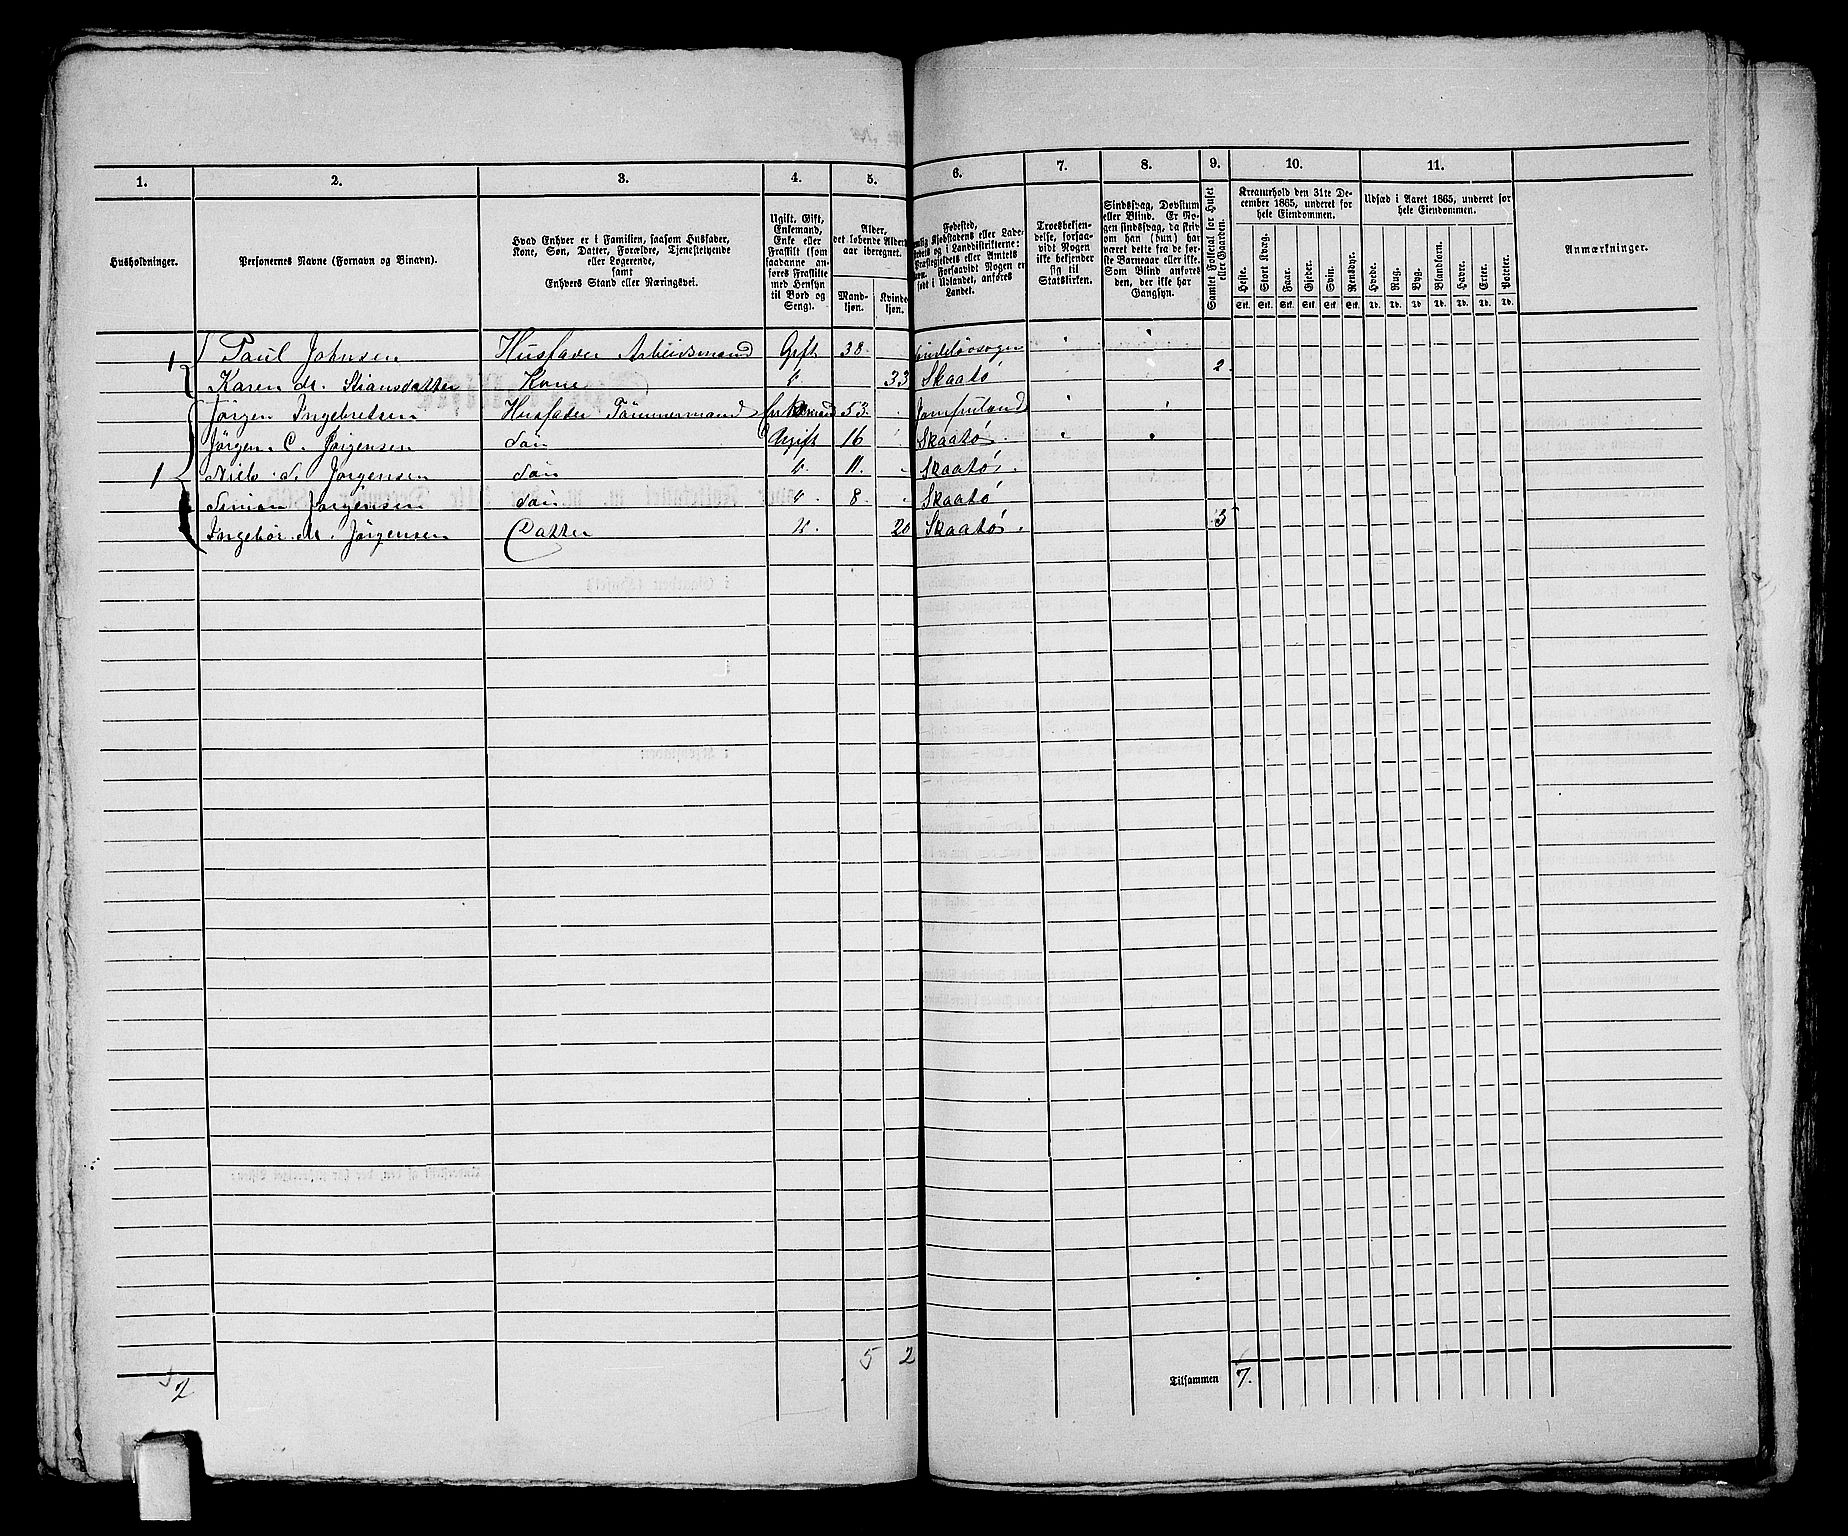 1. 2. 3. 4. 5. 6. 7. 8. 9. 10. 11.
Husholdninger.
Personernes Navne (Fornavn og Binavn).
Hvad Enhver er i Familien, saasom Husfader,
Kone, Søn, Datter, Forældre, Tjenestetyende
eller Logerende,
samt
Enhvers Stand eller Næringsvei.
Ugift, Gift,
Enkemand,
Enke eller
Fraskilt (som
saadanne an-
føres Fraskilte
med Hensyn
til Bord og
Seng).
Alder,
det løbende Alders-
aar iberegnet.
Mand-
kjøn.
Kvinde-
kjøn.
Fødested,
Kjøbstadens eller Lade-
og i Landdistrikterne:
Præstegjeldets eller Amtets
Forsaavidt Nogen er
født i Udlandet, anføres
Landet.
Troesbekjen-
delse, forsaa-
vidt Nogen
ikke bekjender
sig til
Statskirken.
Sindssvag, Døvstum
eller Blind. Er No-
gen sindssvag, da skriv
om han (hun) har
været dette fra de før-
ste Barneaar eller ikke.
Som Blind anføres
den, der ikke har
Gangsyn.
Samlet Folketal for Huset
eller Gaarden.
Kreaturhold den 31te De-
cember 1865, underet for
hele Eiendommen.
Heste. Stort Kvæg. Faar. Gjeder. Svin. Rensdyr.
Stk. Stk. Stk. Stk. Stk. Stk.
Udsæd i Aaret 1865, underet for
hele Eiendommen.
Hvede. Rug. Byg. Blandkorn. Havre. Erter. Poteter.
Td. Td. Td. Td. Td. Td. Td.
Anmærkninger.
1 Paul Johnsen Husfader Arbeidsmand Gift 38
Karen M. Stiansdatter Kone " 33 Skaatø 2
Jørgen Ingebretsen Husfader Tømmermand Enkemand 53 Jomfruland
Jørgen C. Jørgensen Søn Ugift 16 Skaatø
1 Niels Jørgensen Søn " 11 Skaatø
Simon Jørgensen Søn " 8 Skaatø
Ingebør M. Jørgensen Datter " 20 Skaatø 5
5 2
2 Tilsammen 7.